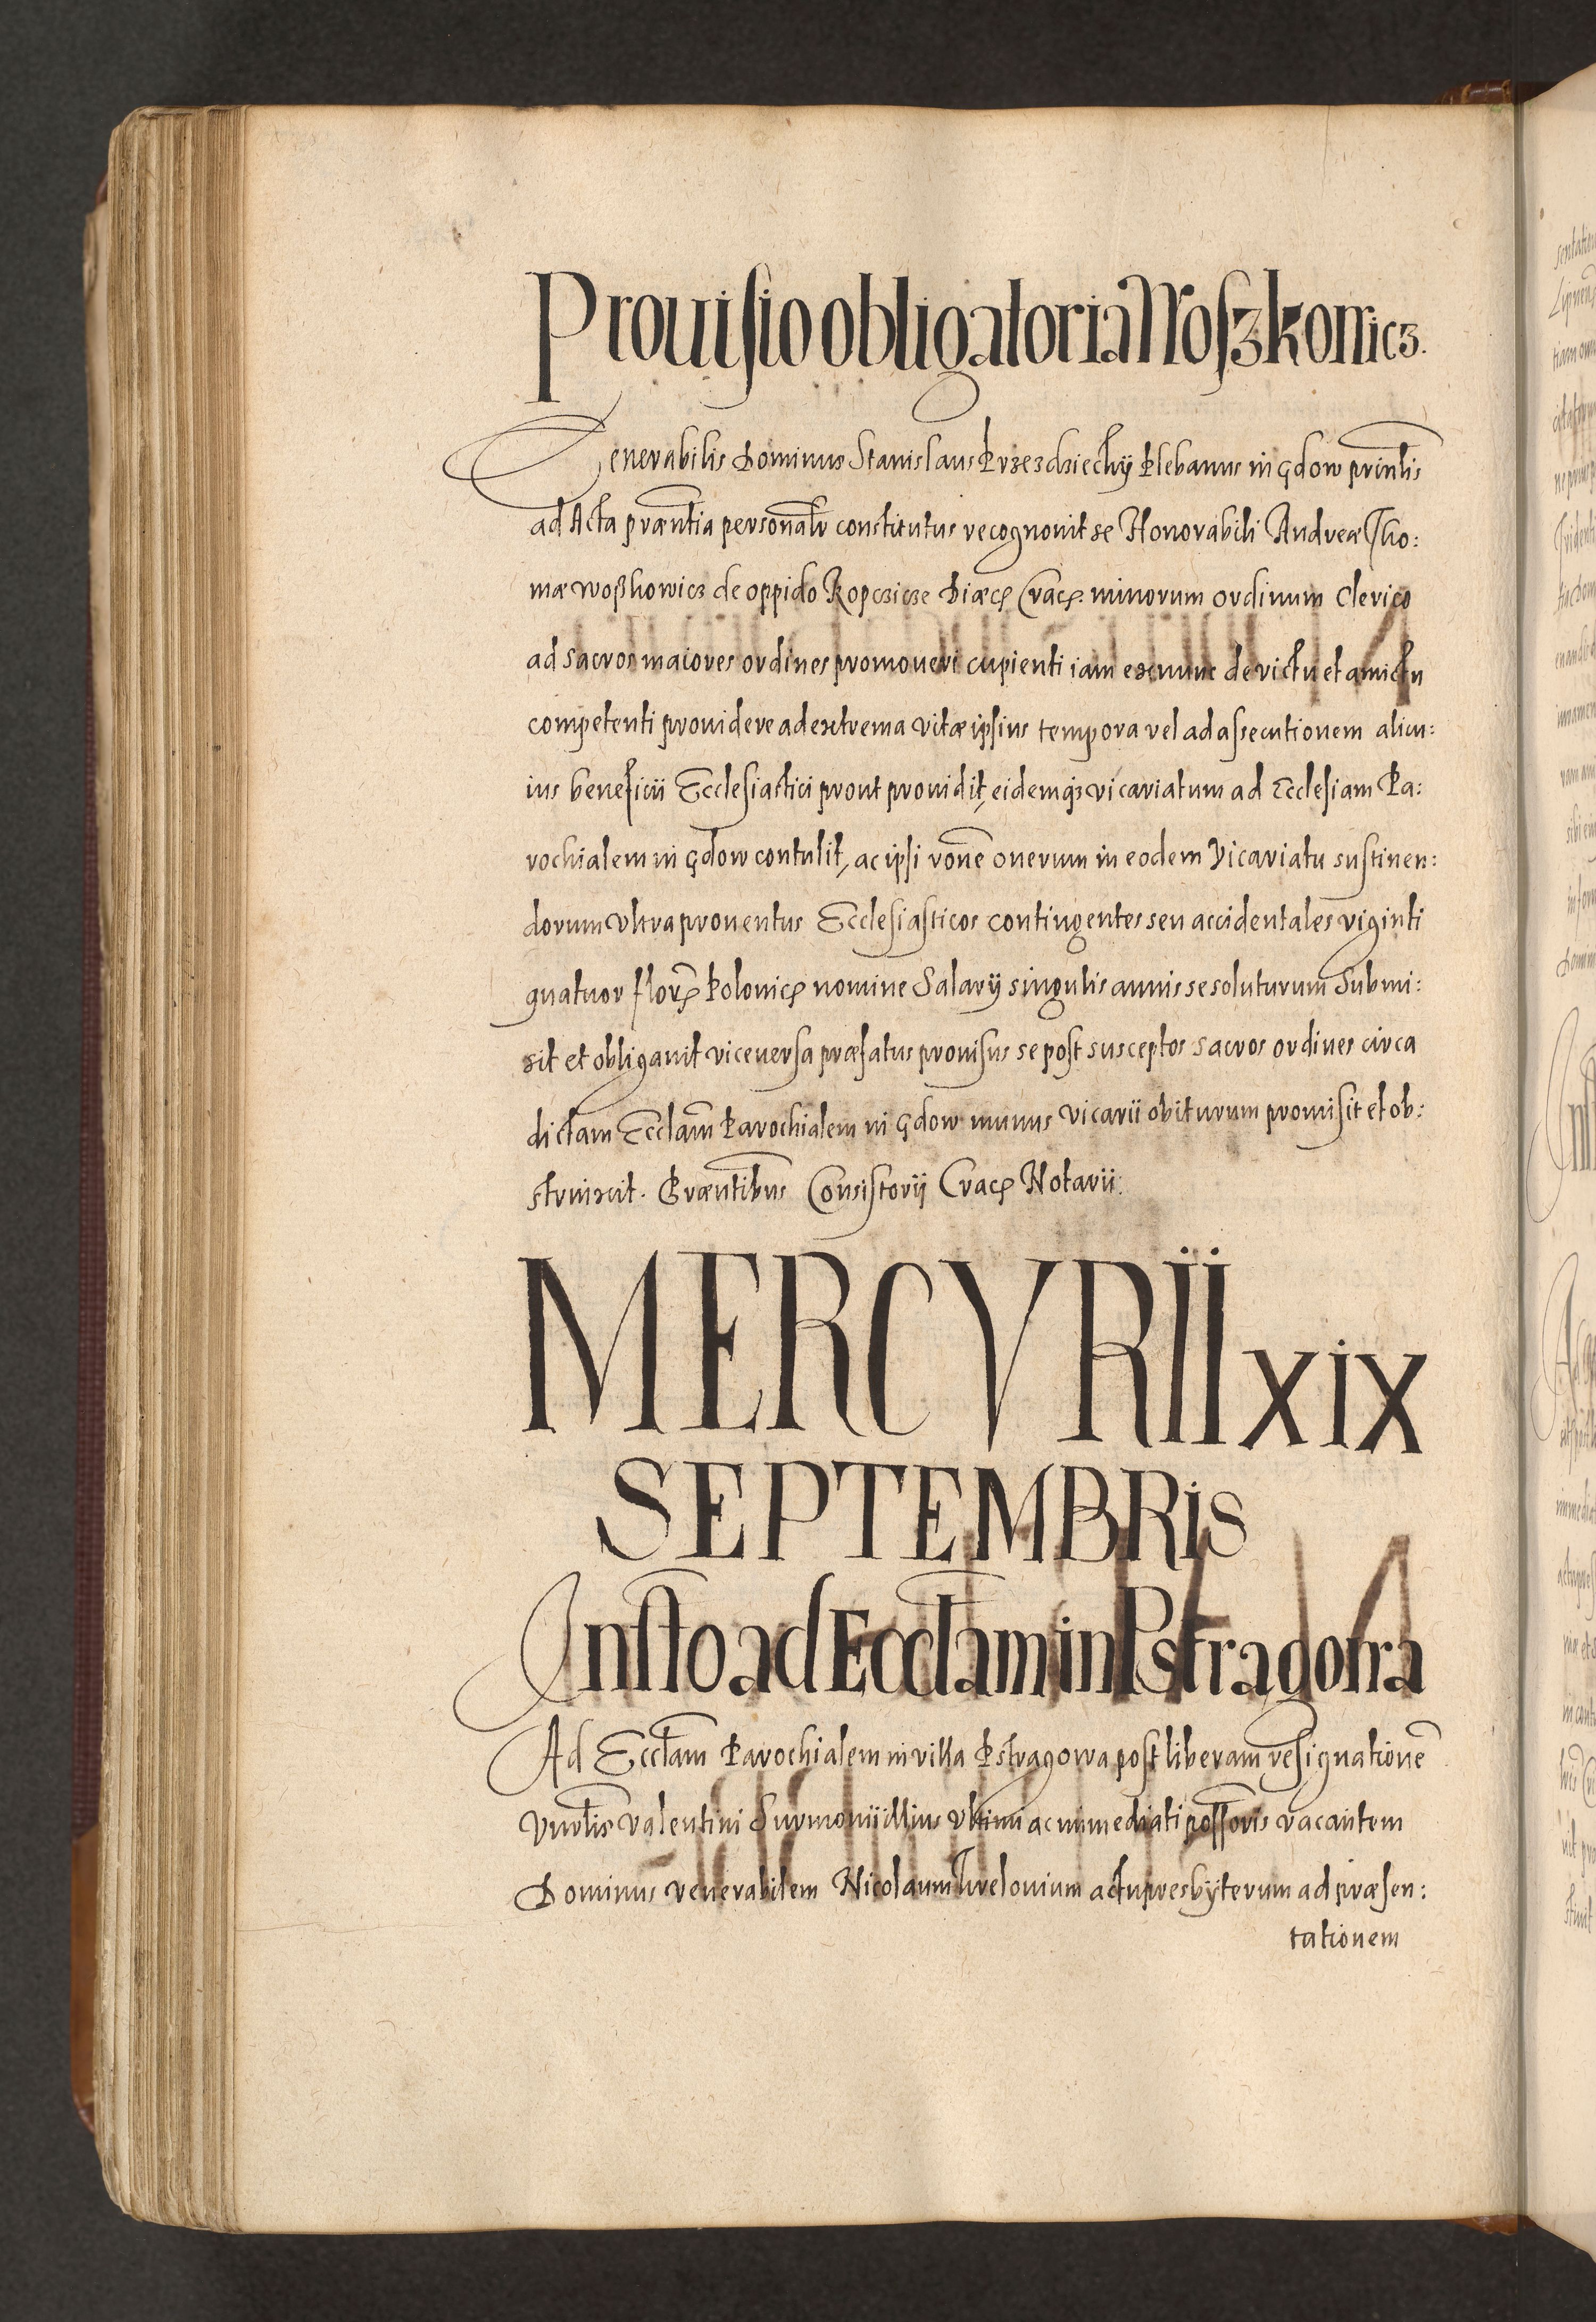 Prouisio obligatoria Woszkowicz.
Venerabilis Dominus Stanislaus Przezdziechÿ Plebanus in Gdow prinlis
ad Acta præntia personalr constitutus recognouit se Honorabili Andreæ Tho:
mæ Woßkowicz de oppido Ropczicze Diæc Crac minorum ordinum Clerico
ad Sacros maiores ordines promoueri cupienti iam ex nunc de victu et amictu
competenti prouidere ad extrema vitæ ipsius tempora vel ad assecutionem alicu:
ius beneficii Ecclesiastici prout prouidit, eidemq3 vicariatum ad Ecclesiam Pa:
rochialem in Gdow contulit, ac ipsi rone onerum in eodem Vicariatu sustinen:
dorum vltra prouentus Ecclesiasticos contingentes seu accidentales viginti
quatuor flor Polonic nomine Salarÿ singulis annis se soluturum Submi:
sit et obligauit viceuersa præfatus prouisus se post susceptos sacros ordines circa
dictam Ecclam Parochialem in Gdow munus Vicarii obiturum promisit et ob:
strinxit. Præntibus Consistorÿ Crac Notarii.
MERCVRII XIX
SEPTEMBRIS
Insto ad Ecclam in Pstragowa
Ad Ecclam Parochialem in villa Pstragowa post liberam resignatione
Vnrlis Valentini Surmonii illius vltimi ac immediati possoris vacantem
Dominus venerabilem Nicolaum actu presbÿterum ad præsen:
tationem